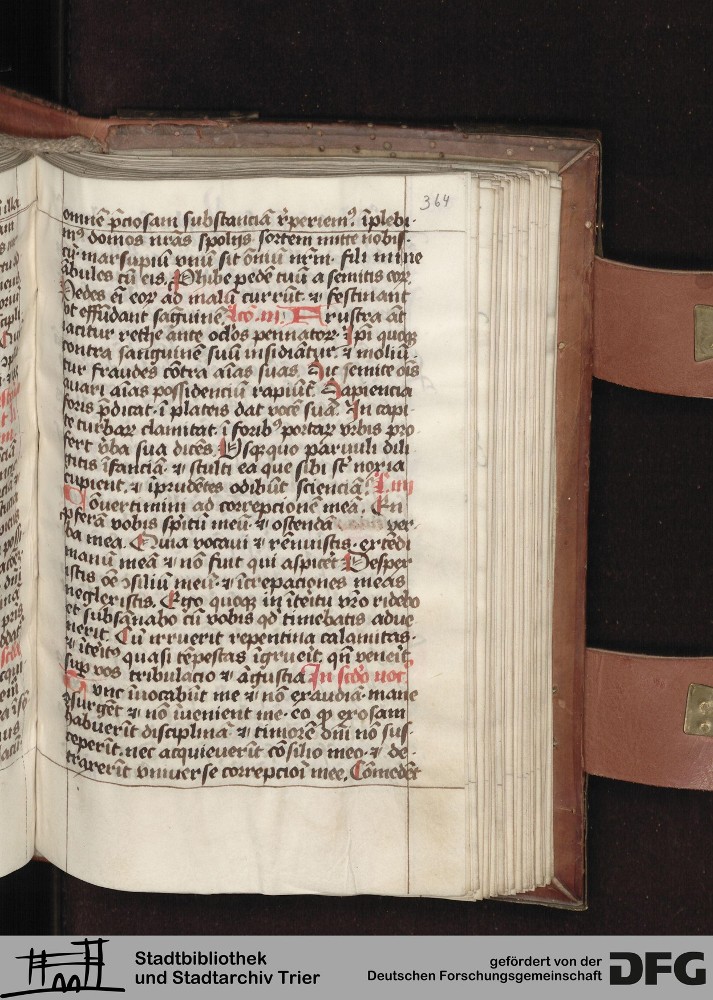 364
omnē p̄ciosam substanciā r̄periem⁹. īplebi-
m⁹ domos nr̄as spolijs. sortem mitte nobis-
cū. marsupiū vnū sit om̄iū nr̄m. fili mi ne
ābules cū eis. Phibe pedē tuū a semitis eoꝝ.
Pedes em̄ eoꝝ ad malū currūt. ⁊ festinant
vt effūdant saguinē. Lcō. iii. Frustra āt
iacitur rethe ānte oclōs pennatoꝝ. Ip̄i quoqꝫ
contra sanguinē suū insidiātur. ⁊ moliū-
tur fraudes cōtra aīas suas. Sic semite oīs
auari aīas possidenciū rapiūt. Sapiencia
foris p̄dicat. ī plateis dat vocē suā. In capi-
te turbaꝝ clamitat. ī forib⁹ portaꝝ vrbis pro
fert v̄ba sua dicēs. Vsqꝫquo paruuli dili
gitis īfanciā. ⁊ stulti ea que sibi st̄ noxia
cupient. ⁊ īprudētes odibūt scienciā. L. iiii
Conuertimini ad correpcionē meā. En
ꝓferā vobis spītū meū ⁊ ostendā ver-
ba mea. Quia vocaui ⁊ rēnuistis. extēdi
manū meā ⁊ nō fuit qui aspicēt. Desper
istis oē ꝯsiliū meū. ⁊ īcrepaciones meas
neglexistis. Ego quoqꝫ in īteītu vr̄o ridebo
et subsānabo cū vobis qd̄ timebatis adue
nerit. Cū irruerit repentina calamitas.
⁊ īteīt⁹ quasi tēpestas īgrueīt. qn̄ veneīt
sup vos tribulacio ⁊ āgustia. In scdō noc̄.
Tunc īuocabūt me ⁊ nō exaudiā. mane
ꝯsurgēt ⁊ nō īuenient me. eo ꝙ exosam
habuerīt disciplinā. ⁊ timorē dn̄i nō sus-
ceperīt. nec acquieuerīt cōsilio meo. ⁊ de-
traxerīt vniuerse correpcioī mee. Cōmedēt
Stadtbibliothek
und Stadtarchiv Trier
gefördert von der
Deutschen Forschungsgemeinschaft
DFG